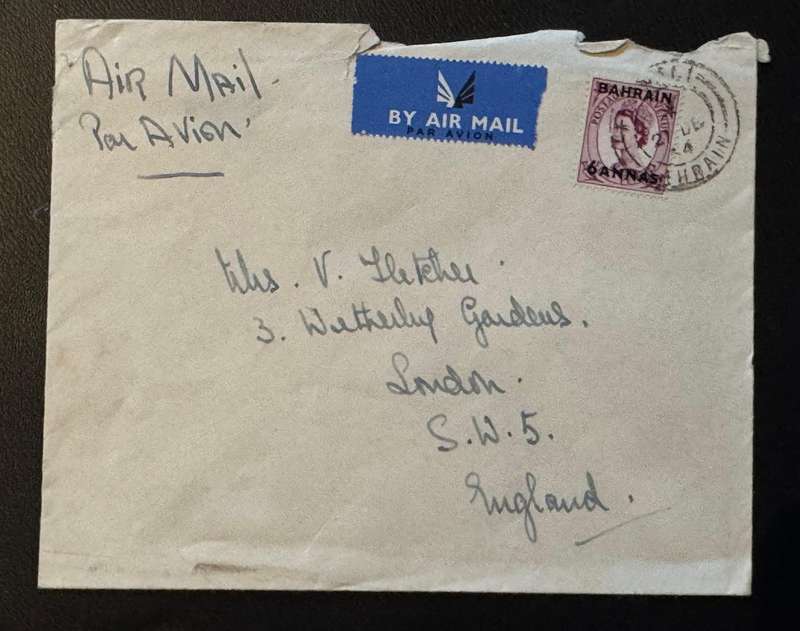 Air Mail.
Par Avion
BY AIR MAIL
PAR AVION
BAHRAIN
POSTAGE REVENUE
6 ANNAS
BAHRAIN
Mrs. V. Fletcher.
3. Wetherby Gardens.
London.
S.W.5.
England.